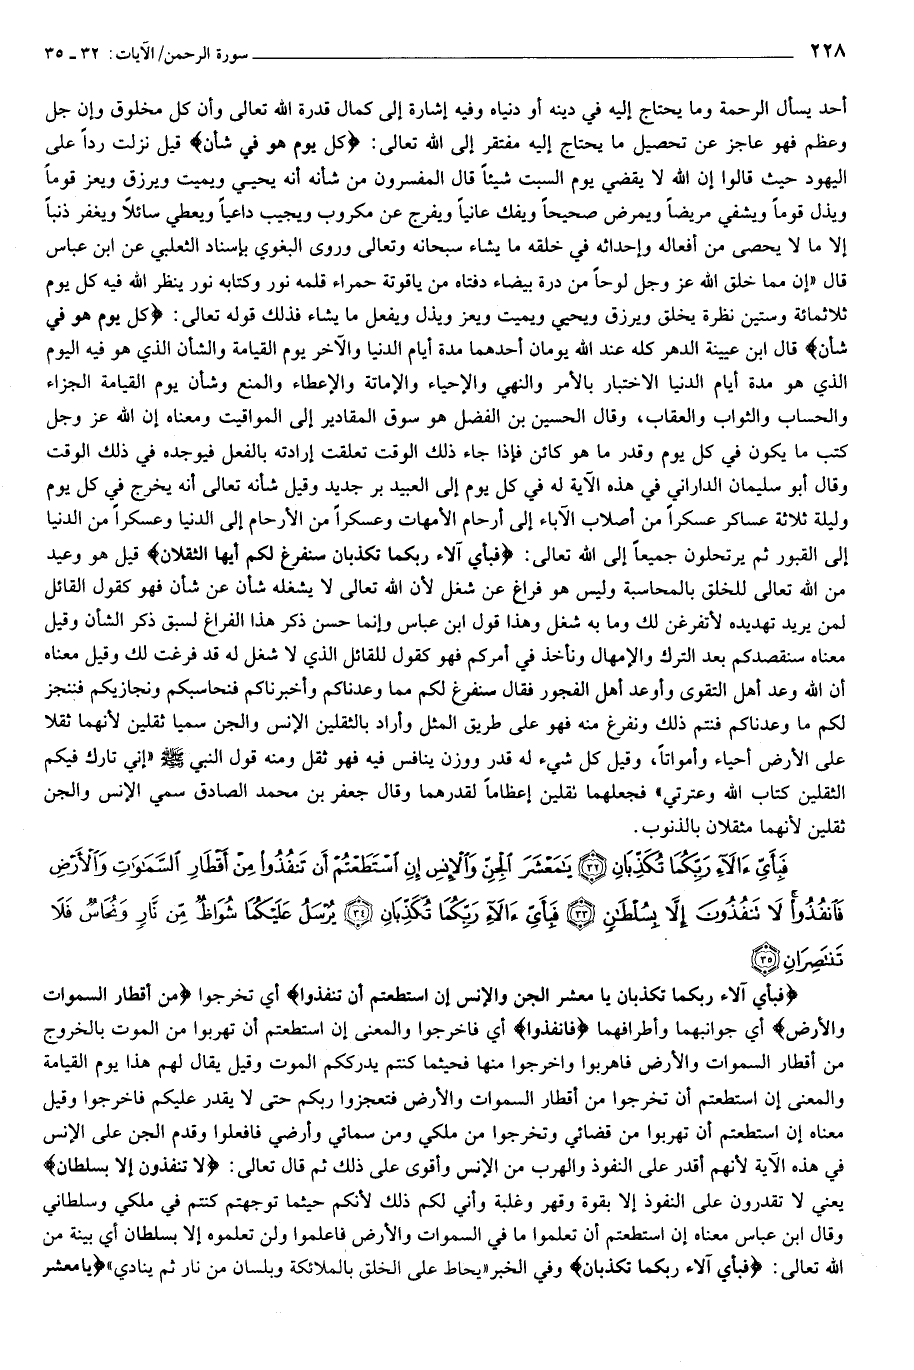 ٢٢٨ سورة الرحمن/ الآيات: ٣٢ ـ ٣٥
أحد يسأل الرحمة وما يحتاج إليه في دينه أو دنياه وفيه إشارة إلى كمال قدرة الله تعالى وأن كل مخلوق وإن جل
وعظم فهو عاجز عن تحصيل ما يحتاج إليه مفتقر إلى الله تعالى: ﴿كل يوم هو في شأن﴾ قيل نزلت رداً على
اليهود حيث قالوا إن الله لا يقضي يوم السبت شيئاً قال المفسرون من شأنه أنه يحيـي ويميت ويرزق ويعز قوماً
ويذل قوماً ويشفي مريضاً ويمرض صحيحاً ويفك عانياً ويفرج عن مكروب ويجيب داعياً ويعطي سائلاً ويغفر ذنباً
إلا ما لا يحصى من أفعاله وإحداثه في خلقه ما يشاء سبحانه وتعالى وروى البغوي بإسناد الثعلبي عن ابن عباس
قال «إن مما خلق الله عز وجل لوحاً من درة بيضاء دفتاه من ياقوتة حمراء قلمه نور وكتابه نور ينظر الله فيه كل يوم
ثلاثمائة وستين نظرة يخلق ويرزق ويحيي ويميت ويعز ويذل ويفعل ما يشاء فذلك قوله تعالى: ﴿كل يوم هو في
شأن﴾ قال ابن عيينة الدهر كله عند الله يومان أحدهما مدة أيام الدنيا والآخر يوم القيامة والشأن الذي هو فيه اليوم
الذي هو مدة أيام الدنيا الاختبار بالأمر والنهي والإحياء والإماتة والإعطاء والمنع وشأن يوم القيامة الجزاء
والحساب والثواب والعقاب، وقال الحسين بن الفضل هو سوق المقادير إلى المواقيت ومعناه إن الله عز وجل
كتب ما يكون في كل يوم وقدر ما هو كائن فإذا جاء ذلك الوقت تعلقت إرادته بالفعل فيوجده في ذلك الوقت
وقال أبو سليمان الداراني في هذه الآية له في كل يوم إلى العبيد بر جديد وقيل شأنه تعالى أنه يخرج في كل يوم
وليلة ثلاثة عساكر عسكراً من أصلاب الآباء إلى أرحام الأمهات وعسكراً من الأرحام إلى الدنيا وعسكراً من الدنيا
إلى القبور ثم يرتحلون جميعاً إلى الله تعالى: ﴿فبأي آلاء ربكما تكذبان سنفرغ لكم أيها الثقلان﴾ قيل هو وعيد
من الله تعالى للخلق بالمحاسبة وليس هو فراغ عن شغل لأن الله تعالى لا يشغله شأن عن شأن فهو كقول القائل
لمن يريد تهديده لأتفرغن لك وما به شغل وهذا قول ابن عباس وإنما حسن ذكر هذا الفراغ لسبق ذكر الشأن وقيل
معناه سنقصدكم بعد الترك والإمهال ونأخذ في أمركم فهو كقول للقائل الذي لا شغل له قد فرغت لك وقيل معناه
أن الله وعد أهل التقوى وأوعد أهل الفجور فقال سنفرغ لكم مما وعدناكم وأخبرناكم فنحاسبكم ونجازيكم فننجز
لكم ما وعدناكم فنتم ذلك ونفرغ منه فهو على طريق المثل وأراد بالثقلين الإنس والجن سميا ثقلين لأنهما ثقلا
على الأرض أحياء وأمواتاً، وقيل كل شيء له قدر ووزن ينافس فيه فهو ثقل ومنه قول النبي ﷺ «إني تارك فيكم
الثقلين كتاب الله وعترتي» فجعلهما ثقلين إعظاماً لقدرهما وقال جعفر بن محمد الصادق سمي الإنس والجن
ثقلين لأنهما مثقلان بالذنوب.
فَبِأَيِّ ءَالَآءِ رَبِّكُمَا تُكَذِّبَانِ ﴿٣٢﴾ يَٰمَعْشَرَ ٱلْجِنِّ وَٱلْإِنسِ إِنِ ٱسْتَطَعْتُمْ أَن تَنفُذُوا۟ مِنْ أَقْطَارِ ٱلسَّمَٰوَٰتِ وَٱلْأَرْضِ
فَٱنفُذُوا۟ لَا تَنفُذُونَ إِلَّا بِسُلْطَٰنٍ ﴿٣٣﴾ فَبِأَيِّ ءَالَآءِ رَبِّكُمَا تُكَذِّبَانِ ﴿٣٤﴾ يُرْسَلُ عَلَيْكُمَا شُوَاظٌ مِّن نَّارٍ وَنُحَاسٌ فَلَا
تَنتَصِرَانِ ﴿٣٥﴾
﴿فبأي آلاء ربكما تكذبان يا معشر الجن والإنس إن استطعتم أن تنفذوا﴾ أي تخرجوا ﴿من أقطار السموات
والأرض﴾ أي جوانبهما وأطرافهما ﴿فانفذوا﴾ أي فاخرجوا والمعنى إن استطعتم أن تهربوا من الموت بالخروج
من أقطار السموات والأرض فاهربوا واخرجوا منها فحيثما كنتم يدرككم الموت وقيل يقال لهم هذا يوم القيامة
والمعنى إن استطعتم أن تخرجوا من أقطار السموات والأرض فتعجزوا ربكم حتى لا يقدر عليكم فاخرجوا وقيل
معناه إن استطعتم أن تهربوا من قضائي وتخرجوا من ملكي ومن سمائي وأرضي فافعلوا وقدم الجن على الإنس
في هذه الآية لأنهم أقدر على النفوذ والهرب من الإنس وأقوى على ذلك ثم قال تعالى: ﴿لا تنفذون إلا بسلطان﴾
يعني لا تقدرون على النفوذ إلا بقوة وقهر وغلبة وأني لكم ذلك لأنكم حيثما توجهتم كنتم في ملكي وسلطاني
وقال ابن عباس معناه إن استطعتم أن تعلموا ما في السموات والأرض فاعلموا ولن تعلموه إلا بسلطان أي بينة من
الله تعالى: ﴿فبأي آلاء ربكما تكذبان﴾ وفي الخبر «يحاط على الخلق بالملائكة وبلسان من نار ثم ينادي» ﴿يا معشر